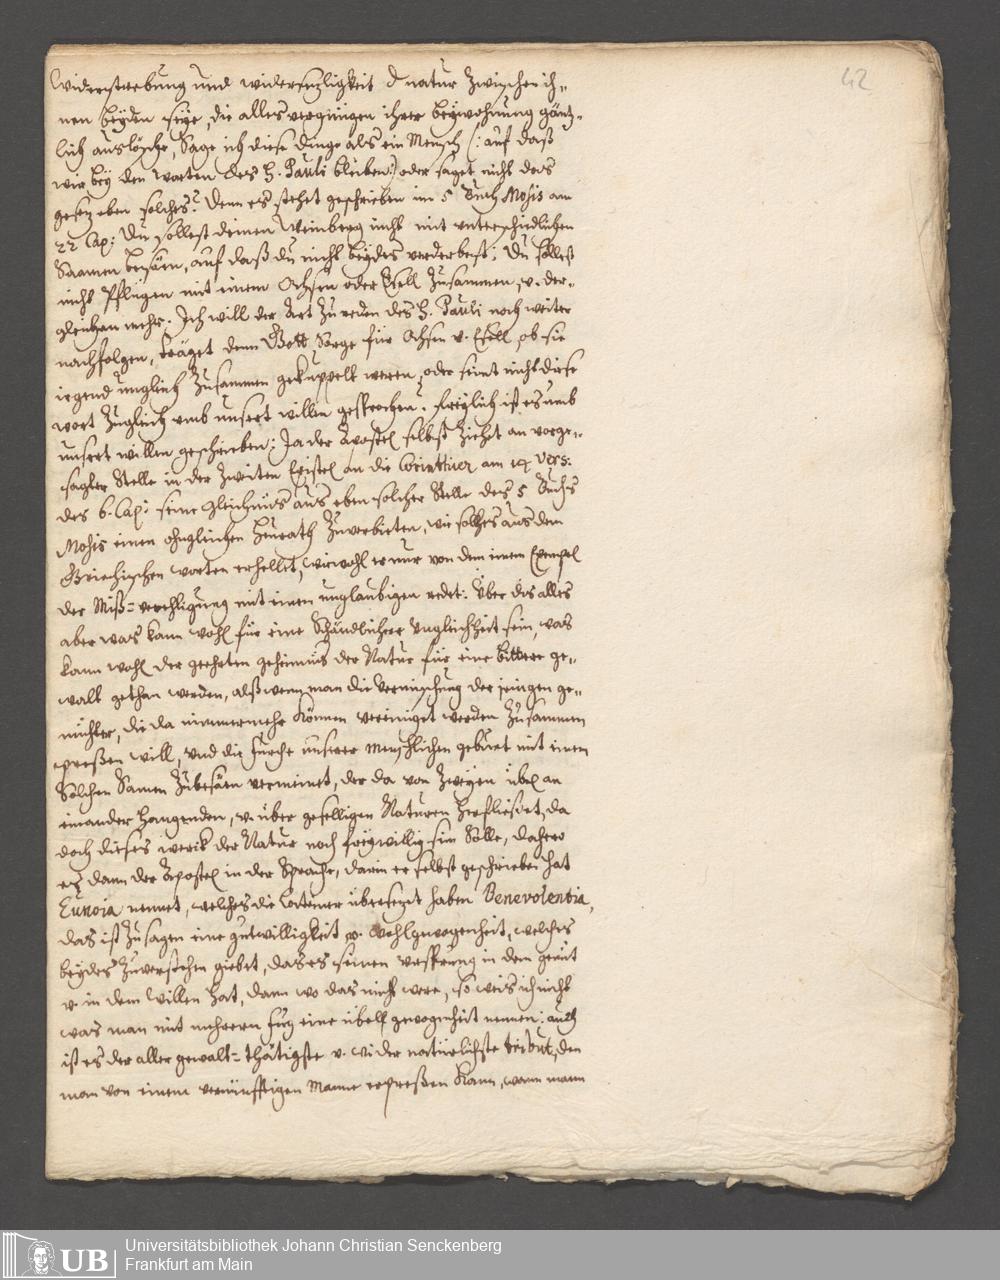 42
Widerstrebung und widersenzligkeit d natur zwischen ih-
nen beyden seye, die alles vergnügen ihrer beywohnung gäntz-
lich auslösche, Sage ich diese dinge als ein Mensch (: auf daß
wir bey den worten des H. Pauli bleiben:) oder saget nicht das
gesez eben solches? Denn es stehet geschrieben im 5 Buch Mosis am
22 Cap: Du sollest deinen Weinberg nicht mit unterschiedlichen
Saamen besäen, auf daß du nicht beydes verderbest; Du sollest
nicht Pflügen mit einem Ochsen oder Esell zusammen, v. der-
gleichen mehr. Ich will der Art zu reden des H. Pauli noch weiter
nachfolgen, träget denn Gott Sorge für Ochsen v. Esell, ob sie
irgend ungleich zusammen gekuppelt weren, oder seint nicht diese
wort zugleich umb unsert willen gesprochen? freylich ist es umb
unsert willen geschrieben: Ja der Apostel selbst ziehet an vorge-
sagter Stelle in der zweiten Epistel an die Corinthier am 14 Vers:
des 6. Cap: seine gleichnis aus eben solcher Stelle des 5 Buchs
Mosis einen ohngleichen Heurath zuverbieten, wie solches aus dem
Griechischen worten erhellet, wiewohl er nur von dem einen Exempel
der Miß-verehligung mit einen unglaubigen redet: Über dis alles
aber was kann wohl für eine Schändlichere Ungleichheit sein, was
kann wohl der geehrten geheimnis der Natur für eine bittere ge-
walt gethan werden, alß wenn man die Vermischung der jeingen ge-
müther, die da nimmermehr können vereiniget werden zusammen
preßen will, und die furche unserer menschlichen geburt mit einen
Solchen Samen zubesäen vermeinet, der da von zweyen übel an
einander hangenden, v. über geselligen Naturen herfliesset, da
doch dieses werck der Natur noch freywillig sein Solle, daherr
es dann der Apostel in der Sprache, darin er selbst geschrieben hat
Eunoia nennet, welches die Lateiner übersezet haben Benevolentia,
das ist zu sagen eine gutwilligkeit v. Wohlgewogenheit, welches
beydes zuverstehen giebet, das es seinen ursprung in dem gemüt
v. in dem Willen hat, dann wo das nicht were, so weis ich nicht
was man mit mehrern fug eine übell gewogenheit nennen; auch
ist es der aller gewalt-thätigste v. wider natürlichste tribut, den
man von einem vernünfftigen Manne erpreßen kann, wann mann
UB
Universitätsbibliothek Johann Christian Senckenberg
Frankfurt am Main